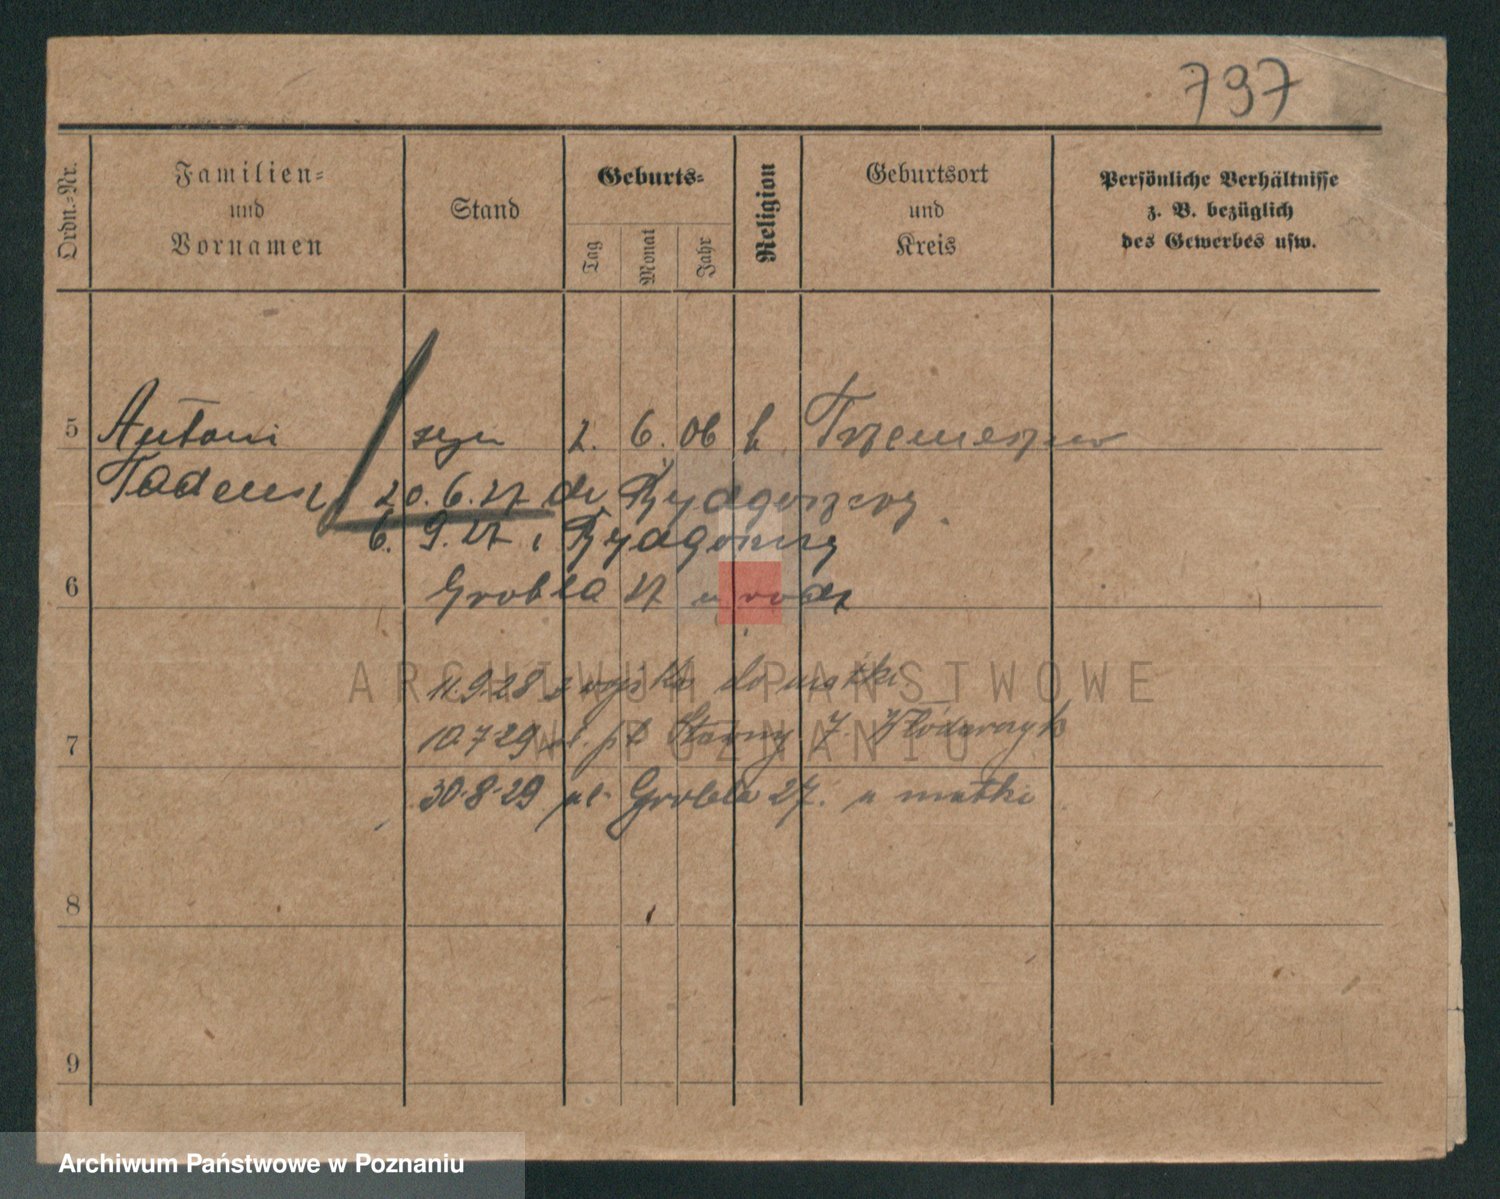 797
Ordn.-Nr.
Familien-
und
Vornamen
Stand
Geburts-
Tag
Monat
Jahr
Religion
Geburtsort
und
Kreis
Persönliche Verhältnisse
z. B. bezüglich
des Gewerbes usw.
5 Antoni syn 2. 6. 06 k Trzemeszno
Tadeusz 20.6.27 do Bydgoszczy
6. 9. 27 z Bydgoszczy
6 Grobla 27 u rodz
11.9.28 z wojska do matki
7 10.7.29 ul. Stawny J. Włódarczyk
30.8.29 ul. Grobla 27. u matki
8
9
ARCHIWUM PAŃSTWOWE
W POZNANIU
Archiwum Państwowe w Poznaniu